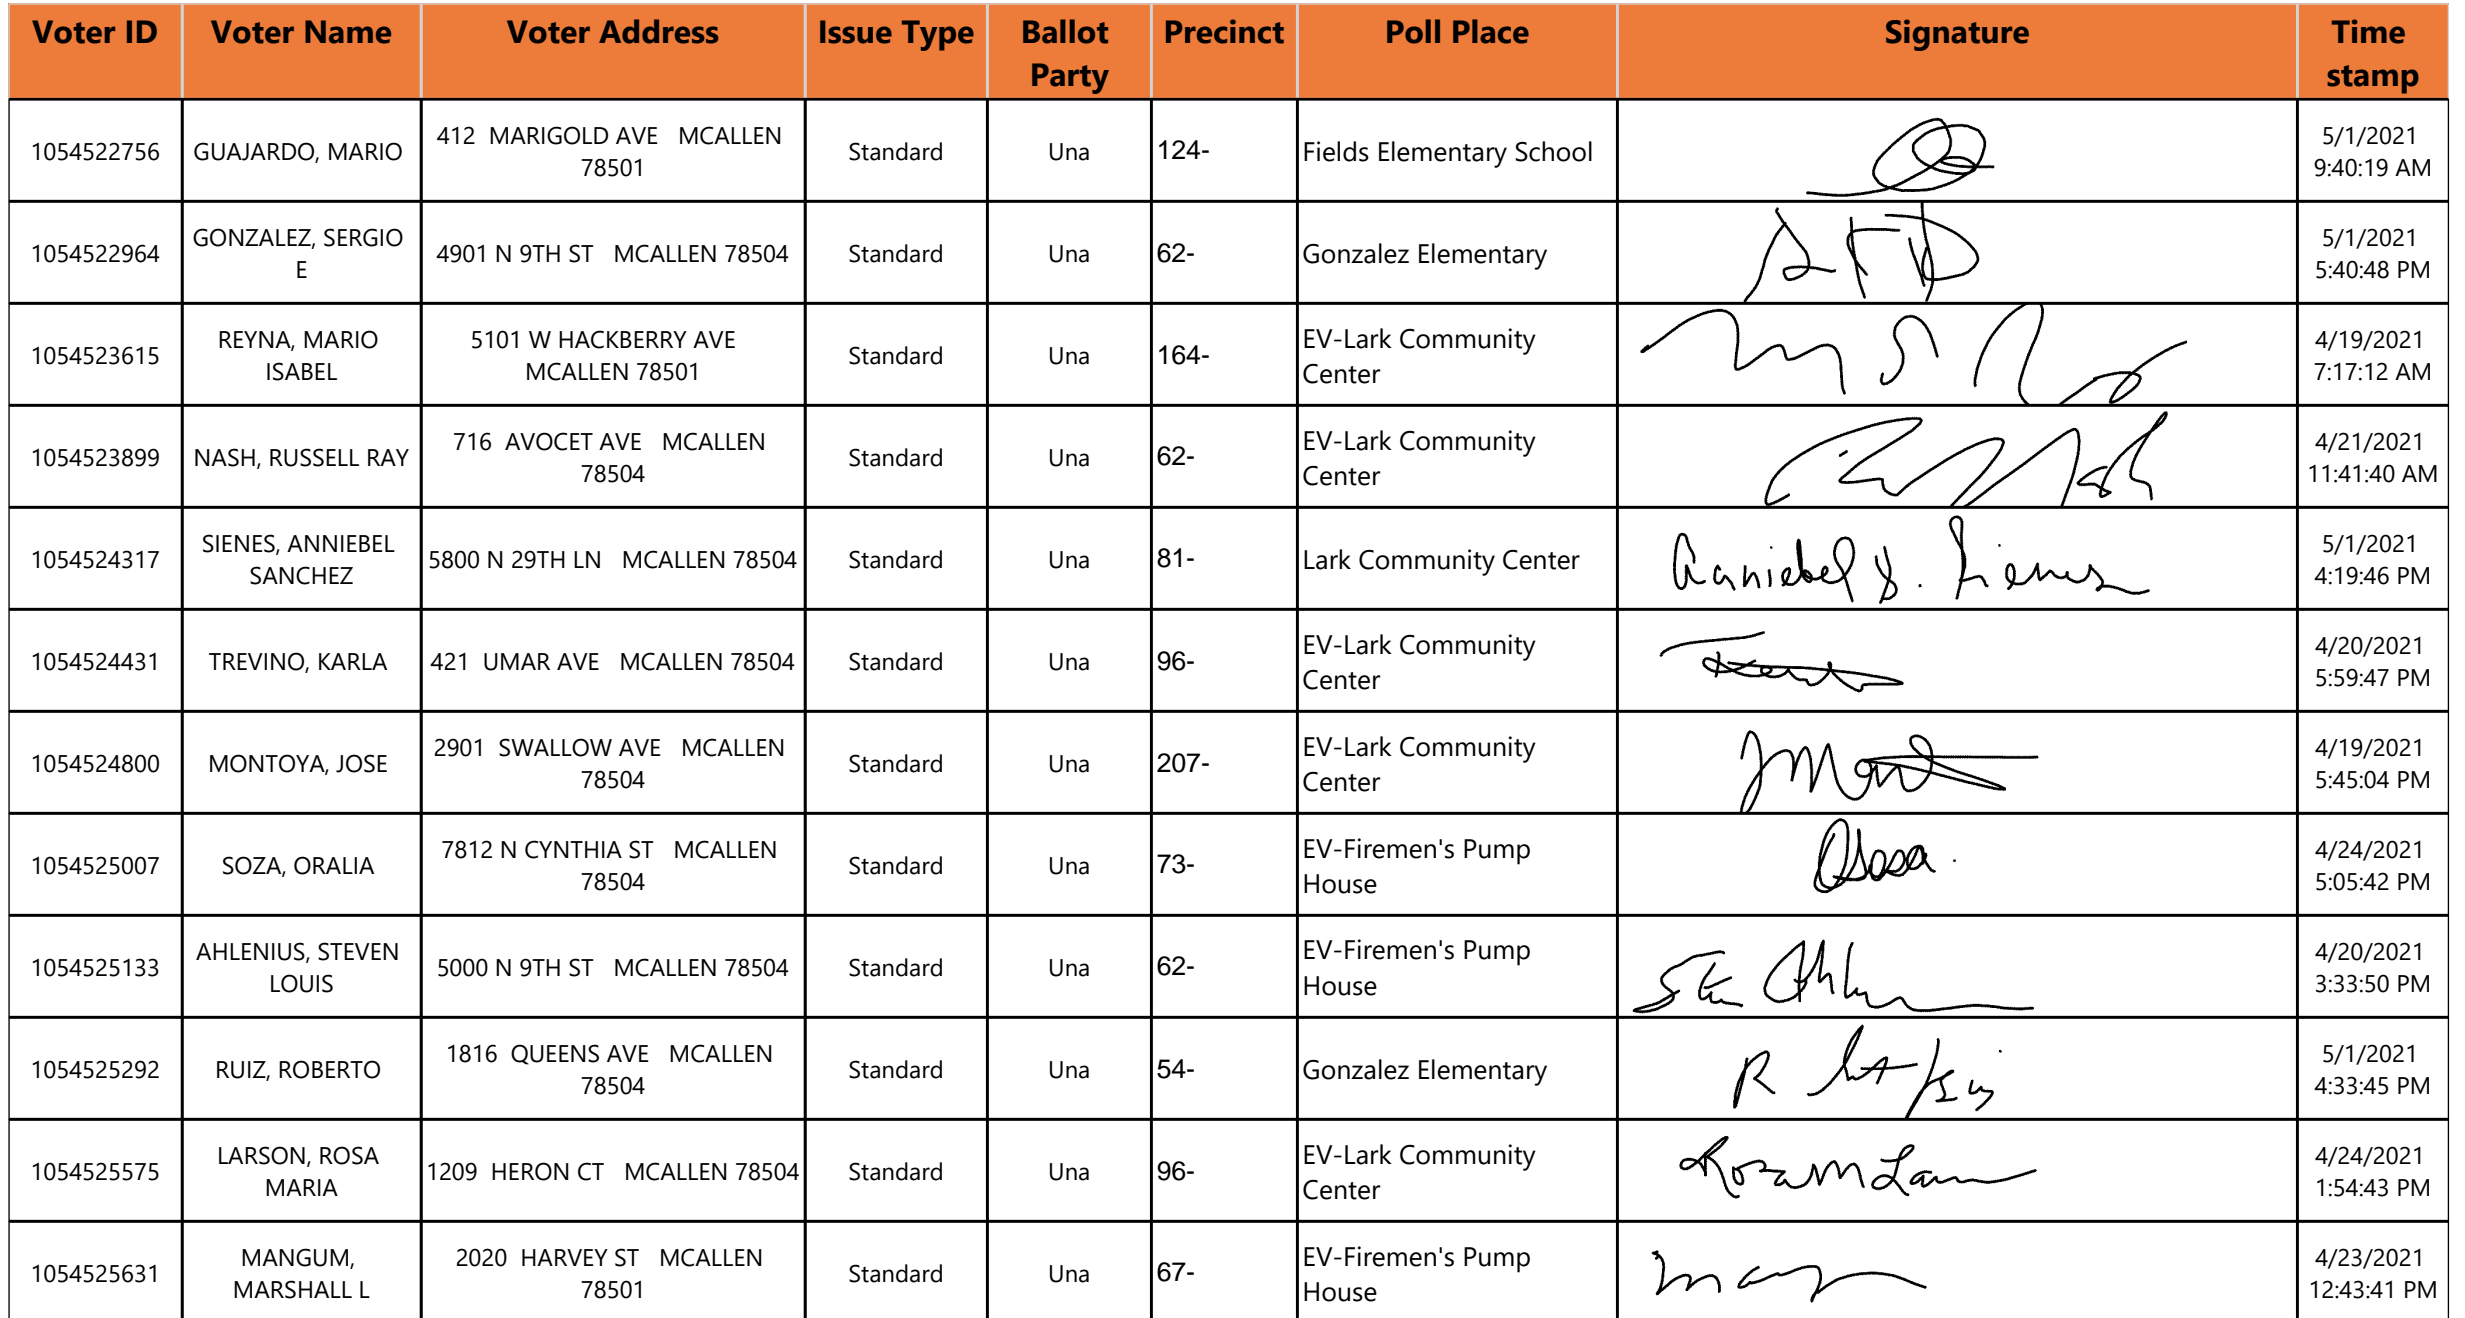 Voter ID Voter Name Voter Address Issue Type Ballot Party Precinct Poll Place Signature Time stamp
1054522756 GUAJARDO, MARIO 412 MARIGOLD AVE MCALLEN 78501 Standard Una 124- Fields Elementary School 5/1/2021 9:40:19 AM
1054522964 GONZALEZ, SERGIO E 4901 N 9TH ST MCALLEN 78504 Standard Una 62- Gonzalez Elementary 5/1/2021 5:40:48 PM
1054523615 REYNA, MARIO ISABEL 5101 W HACKBERRY AVE MCALLEN 78501 Standard Una 164- EV-Lark Community Center 4/19/2021 7:17:12 AM
1054523899 NASH, RUSSELL RAY 716 AVOCET AVE MCALLEN 78504 Standard Una 62- EV-Lark Community Center 4/21/2021 11:41:40 AM
1054524317 SIENES, ANNIEBEL SANCHEZ 5800 N 29TH LN MCALLEN 78504 Standard Una 81- Lark Community Center Anniebel S. Sienes 5/1/2021 4:19:46 PM
1054524431 TREVINO, KARLA 421 UMAR AVE MCALLEN 78504 Standard Una 96- EV-Lark Community Center 4/20/2021 5:59:47 PM
1054524800 MONTOYA, JOSE 2901 SWALLOW AVE MCALLEN 78504 Standard Una 207- EV-Lark Community Center 4/19/2021 5:45:04 PM
1054525007 SOZA, ORALIA 7812 N CYNTHIA ST MCALLEN 78504 Standard Una 73- EV-Firemen's Pump House 4/24/2021 5:05:42 PM
1054525133 AHLENIUS, STEVEN LOUIS 5000 N 9TH ST MCALLEN 78504 Standard Una 62- EV-Firemen's Pump House 4/20/2021 3:33:50 PM
1054525292 RUIZ, ROBERTO 1816 QUEENS AVE MCALLEN 78504 Standard Una 54- Gonzalez Elementary 5/1/2021 4:33:45 PM
1054525575 LARSON, ROSA MARIA 1209 HERON CT MCALLEN 78504 Standard Una 96- EV-Lark Community Center 4/24/2021 1:54:43 PM
1054525631 MANGUM, MARSHALL L 2020 HARVEY ST MCALLEN 78501 Standard Una 67- EV-Firemen's Pump House 4/23/2021 12:43:41 PM